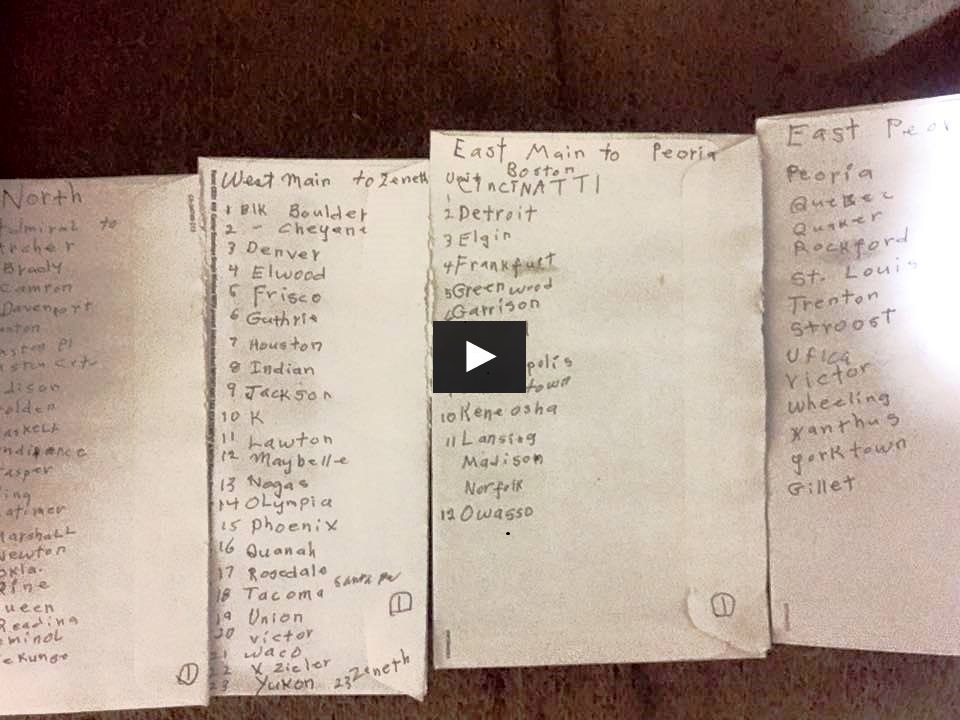 North
Admiral to
Archer
Brady
Camron
Davenport
Marshall
Newton
Okla.
Pine
Queen
Reading
1
West Main to Zeneth
1 Blk Boulder
2 - Cheyene
3 Denver
4 Elwood
5 Frisco
6 Guthrie
7 Houston
8 Indian
9 Jackson
10 K
11 Lawton
12 Maybelle
13 Nogas
14 OLympia
15 Phoenix
16 Quanah
17 Rosedale
18 Tacoma Santa Fe
19 Union
20 Victor
21 Waco
22 X Zieler
23 Yukon 23 Zeneth
1
East Main to Peoria
Boston
CINCINATTI
1
2 Detroit
3 Elgin
4 Frankfurt
5 Greenwood
6 Garrison
polis
town
10 Keneosha
11 Lansing
Madison
Norfolk
12 Owasso
1
East Peor
Peoria
Quebec
Quaker
Rockford
St. Louis
Trenton
Stroost
Utica
Victor
Wheeling
Xanthus
Yorktown
Gillet